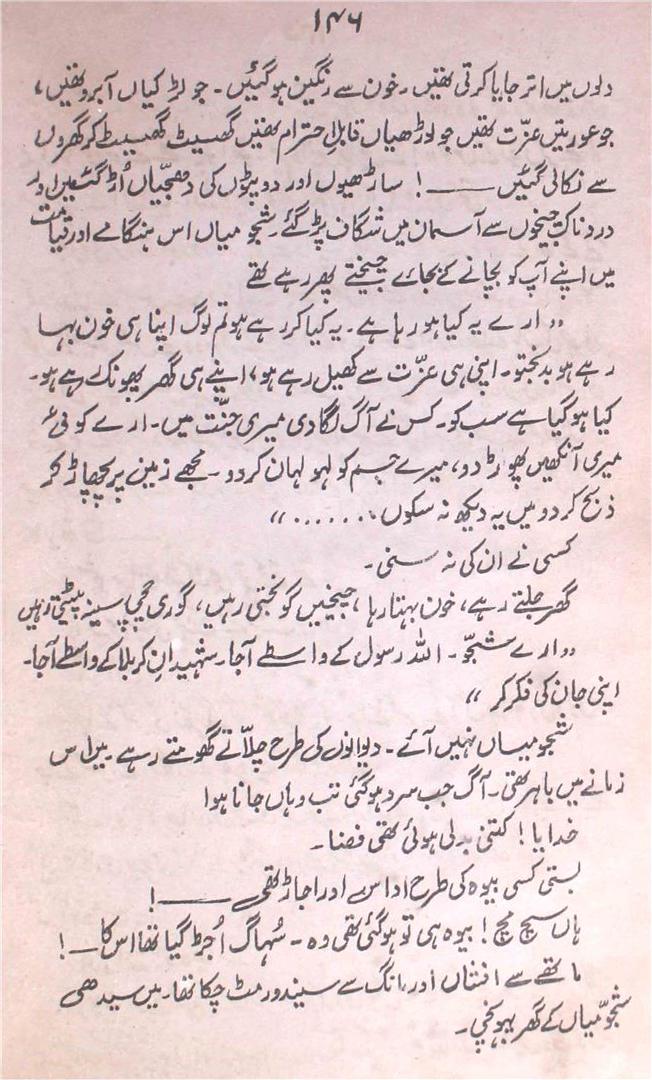 ۱۴۶
دلوں میں اتر جایا کرتی تھیں۔ خون سے رنگین ہوگئیں۔ جو لڑکیاں آبرو تھیں،
جو عورتیں عزّت تھیں جو بوڑھیاں قابلِ احترام تھیں گھسیٹ گھسیٹ کر گھروں
سے نکالی گئیں ——! ساڑھیوں اور دوپٹوں کی دھجیّاں اُڑ گئیں اور
دردناک چیخوں سے آسمان میں شگاف پڑ گئے۔ شجو میاں اس ہنگامے اور قیامت
میں اپنے آپ کو بچانے کے بجائے چیختے پھر رہے تھے
”ارے یہ کیا ہو رہا ہے۔ یہ کیا کر رہے ہو تم لوگ اپنا ہی خون بہا
رہے ہو بدبختو۔ اپنی ہی عزّت سے کھیل رہے ہو، اپنے ہی گھر پھونک رہے ہو۔
کیا ہو گیا ہے سب کو۔ کس نے آگ لگا دی میری جنّت میں۔ ارے کوئی
میری آنکھیں پھوڑ دو، میرے جسم کو لہو لہان کر دو۔ مجھے زمین پر پچھاڑ کر
ذبح کر دو میں یہ دیکھ نہ سکوں.......“
کسی نے ان کی نہ سنی۔
گھر جلتے رہے، خون بہتا رہا، چیخیں گونجتی رہیں، گوری چچی سینہ پیٹتی رہیں
”ارے شجّو۔ اللہ رسول کے واسطے آجا۔ شہیدانِ کربلا کے واسطے آجا۔
اپنی جان کی فکر کر“
شجو میاں نہیں آئے۔ دیوانوں کی طرح چلاّتے گھومتے رہے۔ میں اس
زمانے میں باہر تھی۔ آگ جب سرد ہوگئی تب وہاں جانا ہوا
خدایا! کتنی بدلی ہوئی تھی فضا۔
بستی کسی بیوہ کی طرح اداس اور اجاڑ تھی ——!
ہاں سچ مچ! بیوہ ہی تو ہوگئی تھی وہ۔ سُہاگ اُجڑ گیا تھا اس کا—!
ماتھے سے افشاں اور مانگ سے سیندور مٹ چکا تھا۔ میں سیدھی
شجّو میاں کے گھر پہونچی۔